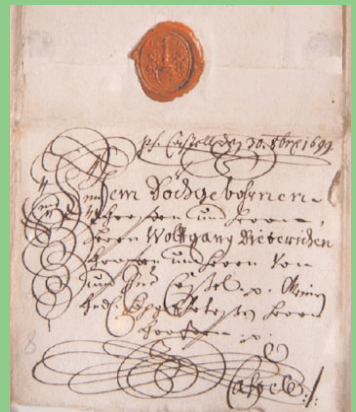 ps. Castell den 30. 8br. 1694
Dem Hochgebohrnen
Graffen und Herrn,
Herrn Wolffgang Dieterichen
Graffen und Herrn Von
und Zue Castel. p. Mein
Herrn
Graffen p.
Castell